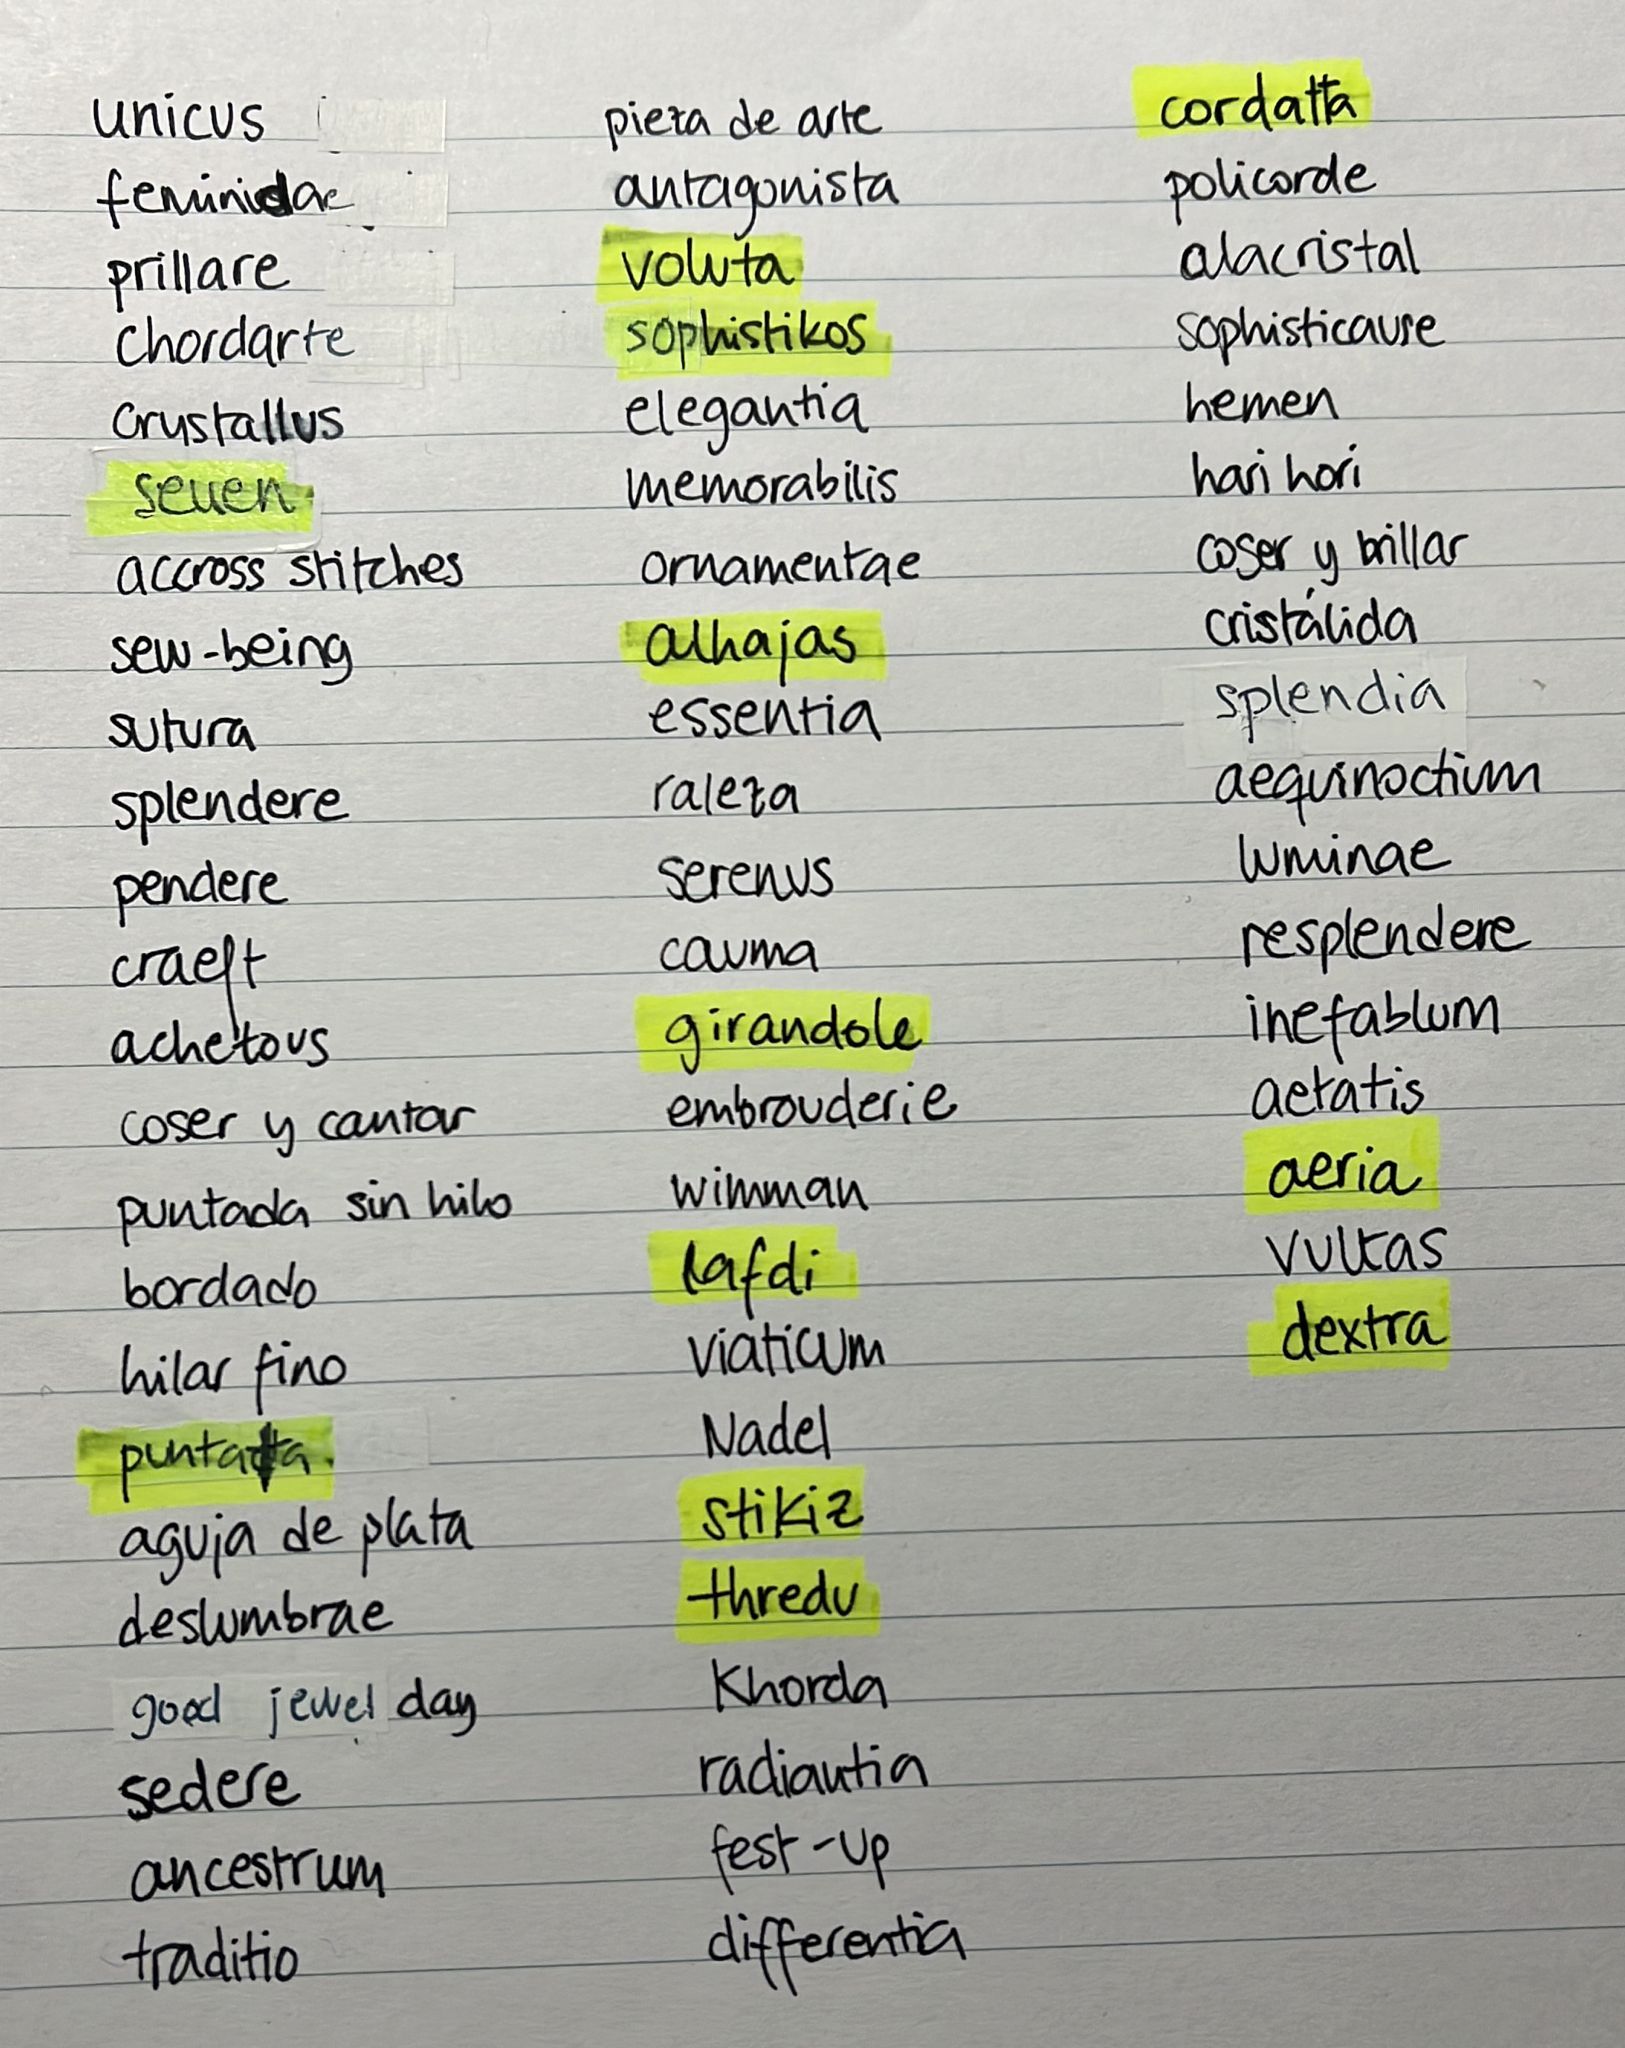 unicus
feminidae
prillare
chordarte
crystallus
seuen
accross stitches
sew-being
sutura
splendere
pendere
craeft
achetous
coser y cantar
puntada sin hilo
bordado
hilar fino
puntatta
aguja de plata
deslumbrae
good jewel day
sedere
ancestrum
traditio
pieza de arte
antagonista
voluta
sophistikos
elegantia
memorabilis
ornamentae
alhajas
essentia
raleza
serenus
cauma
girandole
embrouderie
wimman
lafdi
viaticum
Nadel
stikiz
thredu
Khorda
radiantia
fest-up
differentia
cordatta
policorde
alacristal
sophisticause
hemen
hari hori
coser y brillar
cristálida
splendia
aequinoctium
luminae
resplendere
inefablum
aetatis
aeria
vultas
dextra